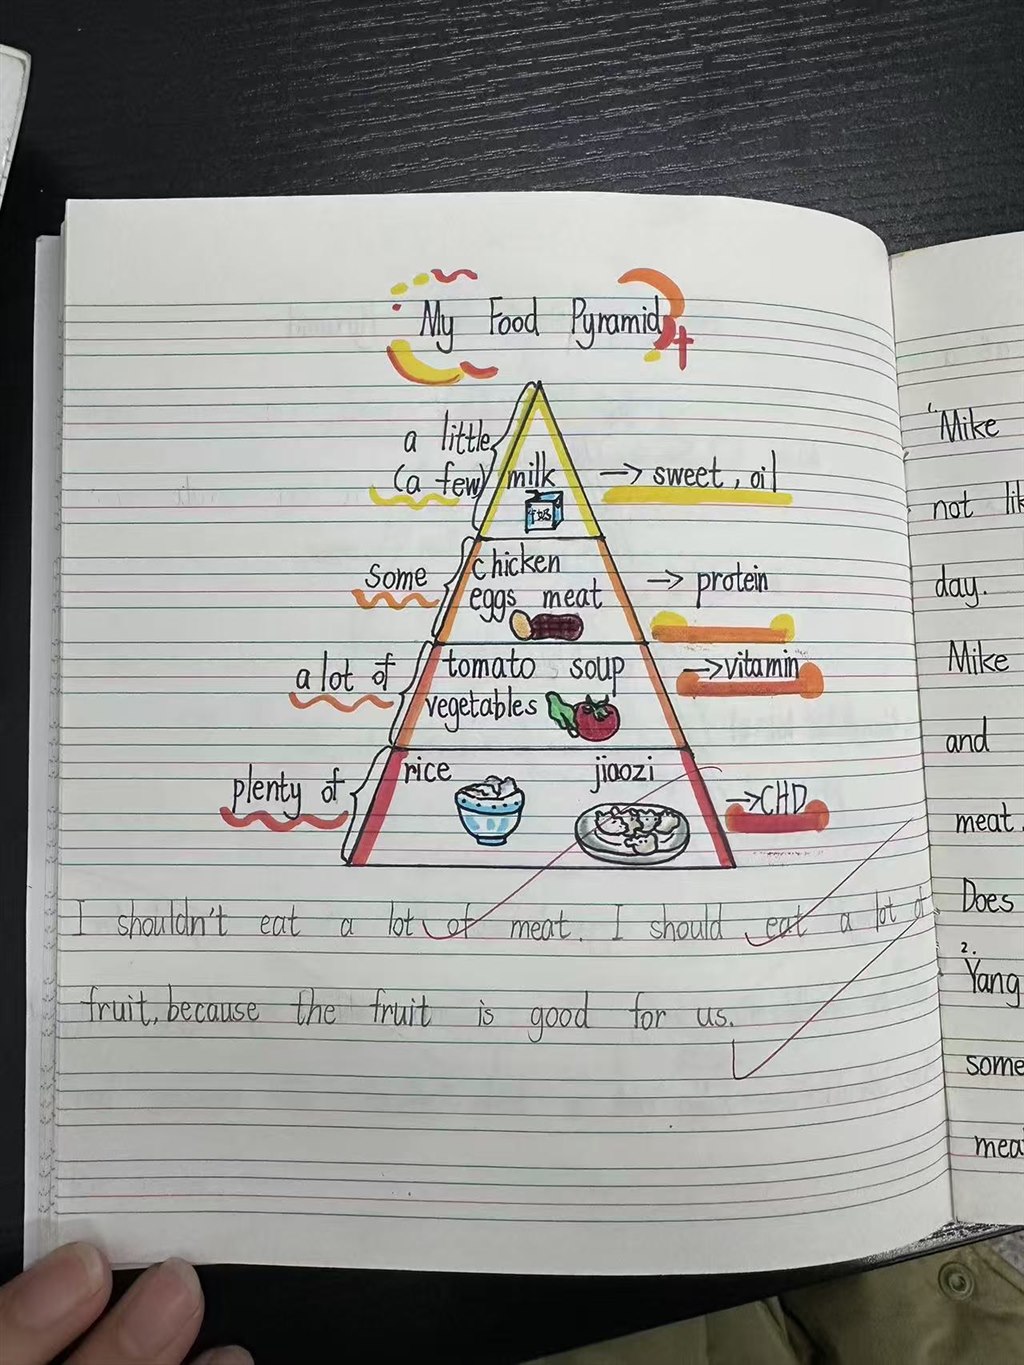 My Food Pyramid
a little
(a few) milk → sweet, oil
牛奶
some chicken
eggs meat → protein
a lot of tomato soup → vitamin
vegetables
plenty of rice jiaozi → CHD
I shouldn't eat a lot of meat. I should eat a lot of
fruit, because the fruit is good for us.
1. Mike
not
day.
Mike
and
meat.
Does
2. Yang
some